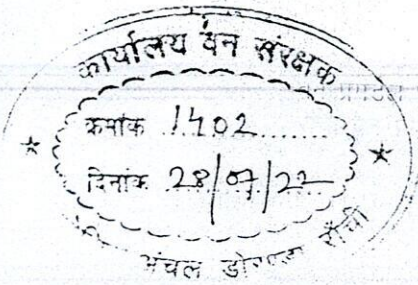 कार्यालय वन संरक्षक
क्रमांक 1402
दिनांक 28/07/22
अंचल डोरण्डा राँची